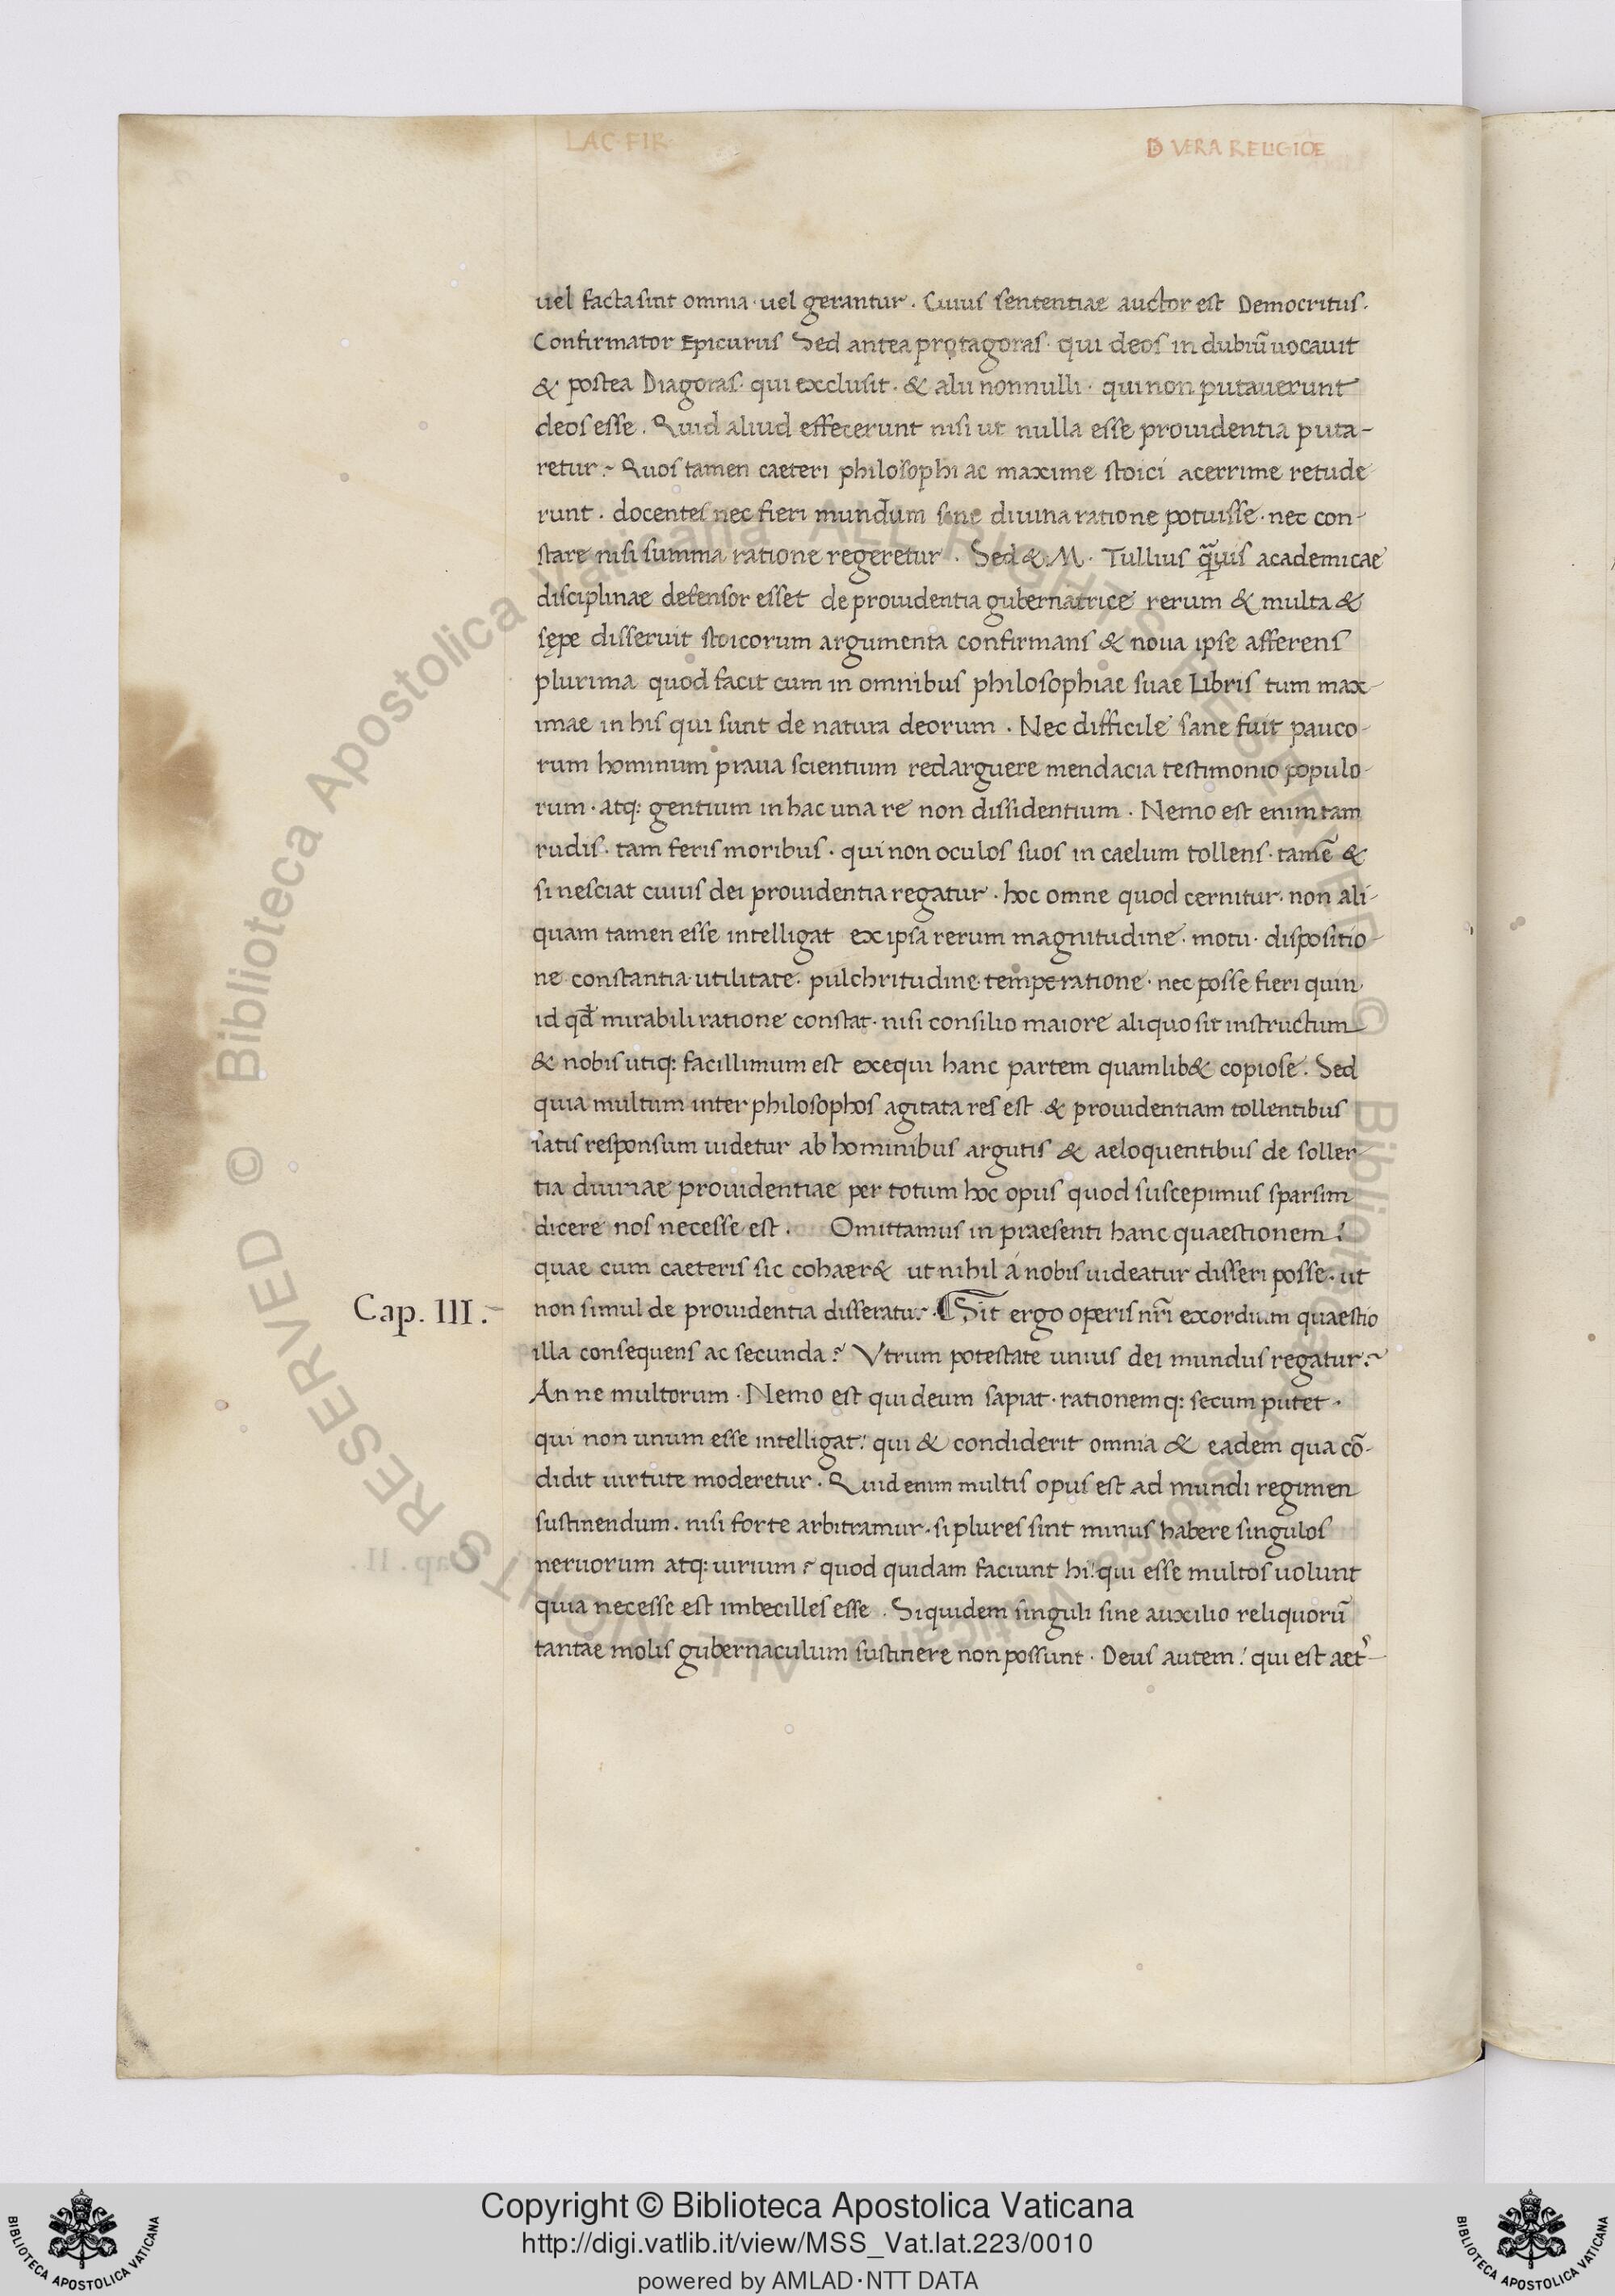 LAC FIR
D VERA RELIGIOE
uel facta sint omnia · uel gerantur . Cuius sententiae auctor est Democritus .
Confirmator Epicurus Sed antea protagoras · qui deos in dubiū uocauit
& postea Diagoras · qui exclusit · & alii nonnulli · qui non putauerunt
deos esse . Quid aliud effecerunt nisi ut nulla esse prouidentia puta-
retur ? Quos tamen caeteri philosophi ac maxime stoici acerrime retude
runt . docentes nec fieri mundum sine diuina ratione potuisse · nec con-
stare nisi summa ratione regeretur . Sed & M · Tullius q̃uis academicae
disciplinae defensor esset de prouidentia gubernatrice rerum & multa &
sępe disseruit stoicorum argumenta confirmans & noua ipse afferens
plurima quod facit cum in omnibus philosophiae suae Libris tum max-
imae in his qui sunt de natura deorum . Nec difficile sane fuit pauco-
rum hominum praua scientium redarguere mendacia testimonio populo-
rum · atq: gentium in hac una re non dissidentium . Nemo est enim tam
rudis · tam feris moribus · qui non oculos suos in caelum tollens · tamē &
si nesciat cuius dei prouidentia regatur · hoc omne quod cernitur · non ali-
quam tamen esse intelligat ex ipsa rerum magnitudine · motu · dispositio-
ne constantia · utilitate · pulchritudine · temperatione · nec posse fieri quin
id qd̄ mirabili ratione constat · nisi consilio maiore aliquo sit instructum
& nobis utiq: facillimum est exequi hanc partem quamlib& copiose . Sed
quia multum inter philosophos agitata res est & prouidentiam tollentibus
satis responsum uidetur ab hominibus argutis & aeloquentibus de soller-
tia diuinae prouidentiae per totum hoc opus quod suscepimus sparsim
dicere nos necesse est . Omittamus in praesenti hanc quaestionem :
quae cum caeteris sic cohaer& ut nihil á nobis uideatur disseri posse · ut
Cap. III. non simul de prouidentia disseratur . Sit ergo operis nr̄i exordium quaestio
illa consequens ac secunda ? Vtrum potestate unius dei mundus regatur ?
An ne multorum · Nemo est qui deum sapiat · rationemq: secum putet ·
qui non unum esse intelligat : qui & condiderit omnia & eadem qua cō-
didit uirtute moderetur . Quid enim multis opus est ad mundi regimen
sustinendum . nisi forte arbitramur · si plures sint minus habere singulos
neruorum atq: uirium ? quod quidam faciunt hi : qui esse multos uolunt
quia necesse est imbecilles esse . Siquidem singuli sine auxilio reliquorū
tantae molis gubernaculum sustinere non possunt · Deus autem : qui est aet
Copyright © Biblioteca Apostolica Vaticana
http://digi.vatlib.it/view/MSS_Vat.lat.223/0010
powered by AMLAD·NTT DATA
BIBLIOTECA APOSTOLICA VATICANA
BIBLIOTECA APOSTOLICA VATICANA